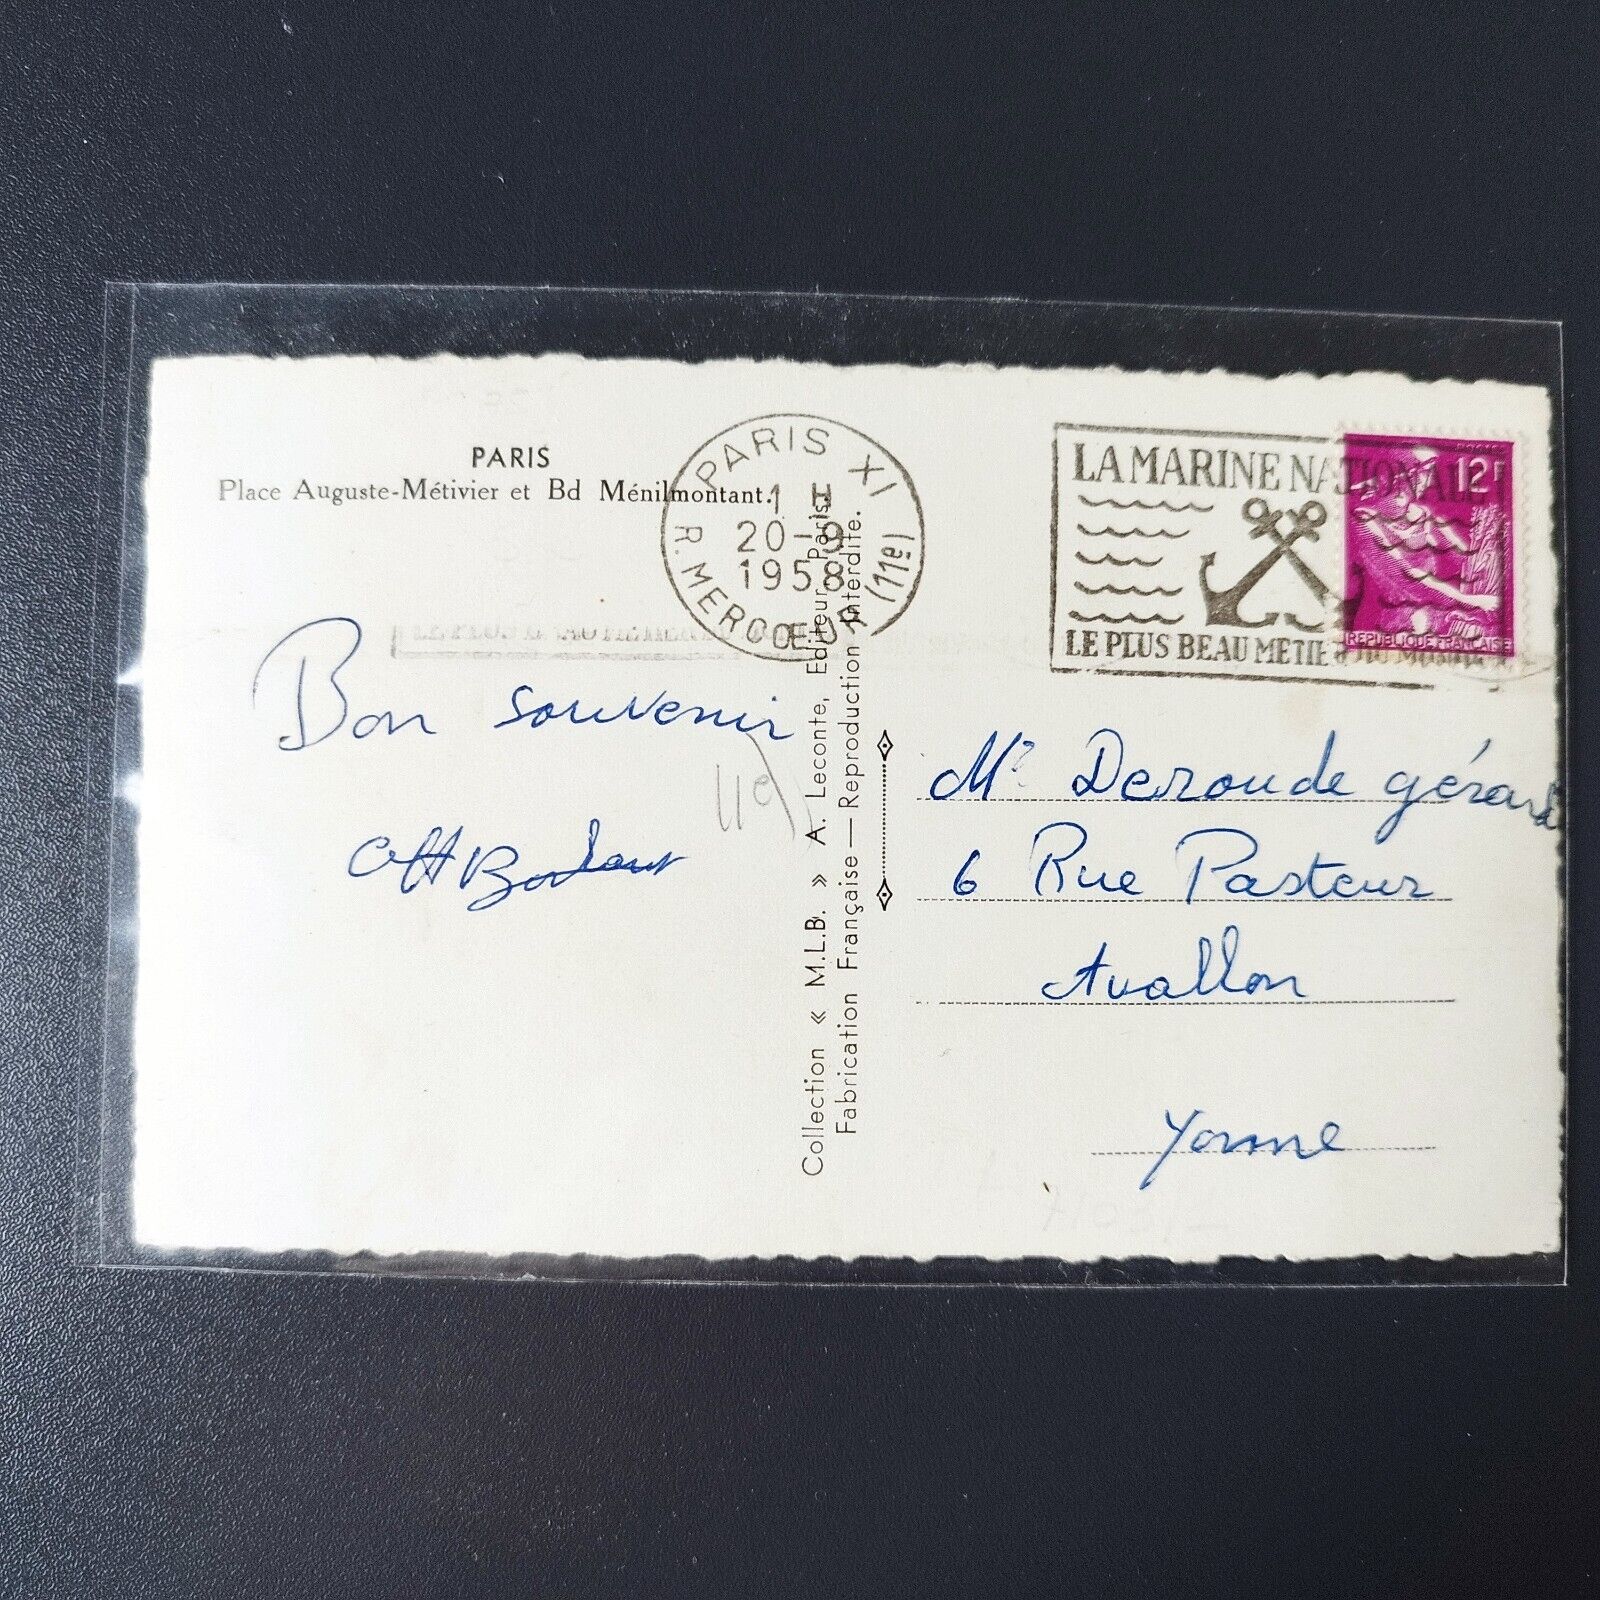 PARIS
Place Auguste-Métivier et Bd Ménilmontant.
PARIS XI
1 H
20-9
1958
R. MERCŒUR (11e)
LA MARINE NATIONALE
LE PLUS BEAU METIER DU MONDE
12F
REPUBLIQUE FRANÇAISE
Bon souvenir
11e
Collection « M.L.B. » A. Leconte, Editeur, Paris.
Fabrication Française — Reproduction Interdite.
Mr Deroude gérard
6 Rue Pasteur
Avallon
Yonne